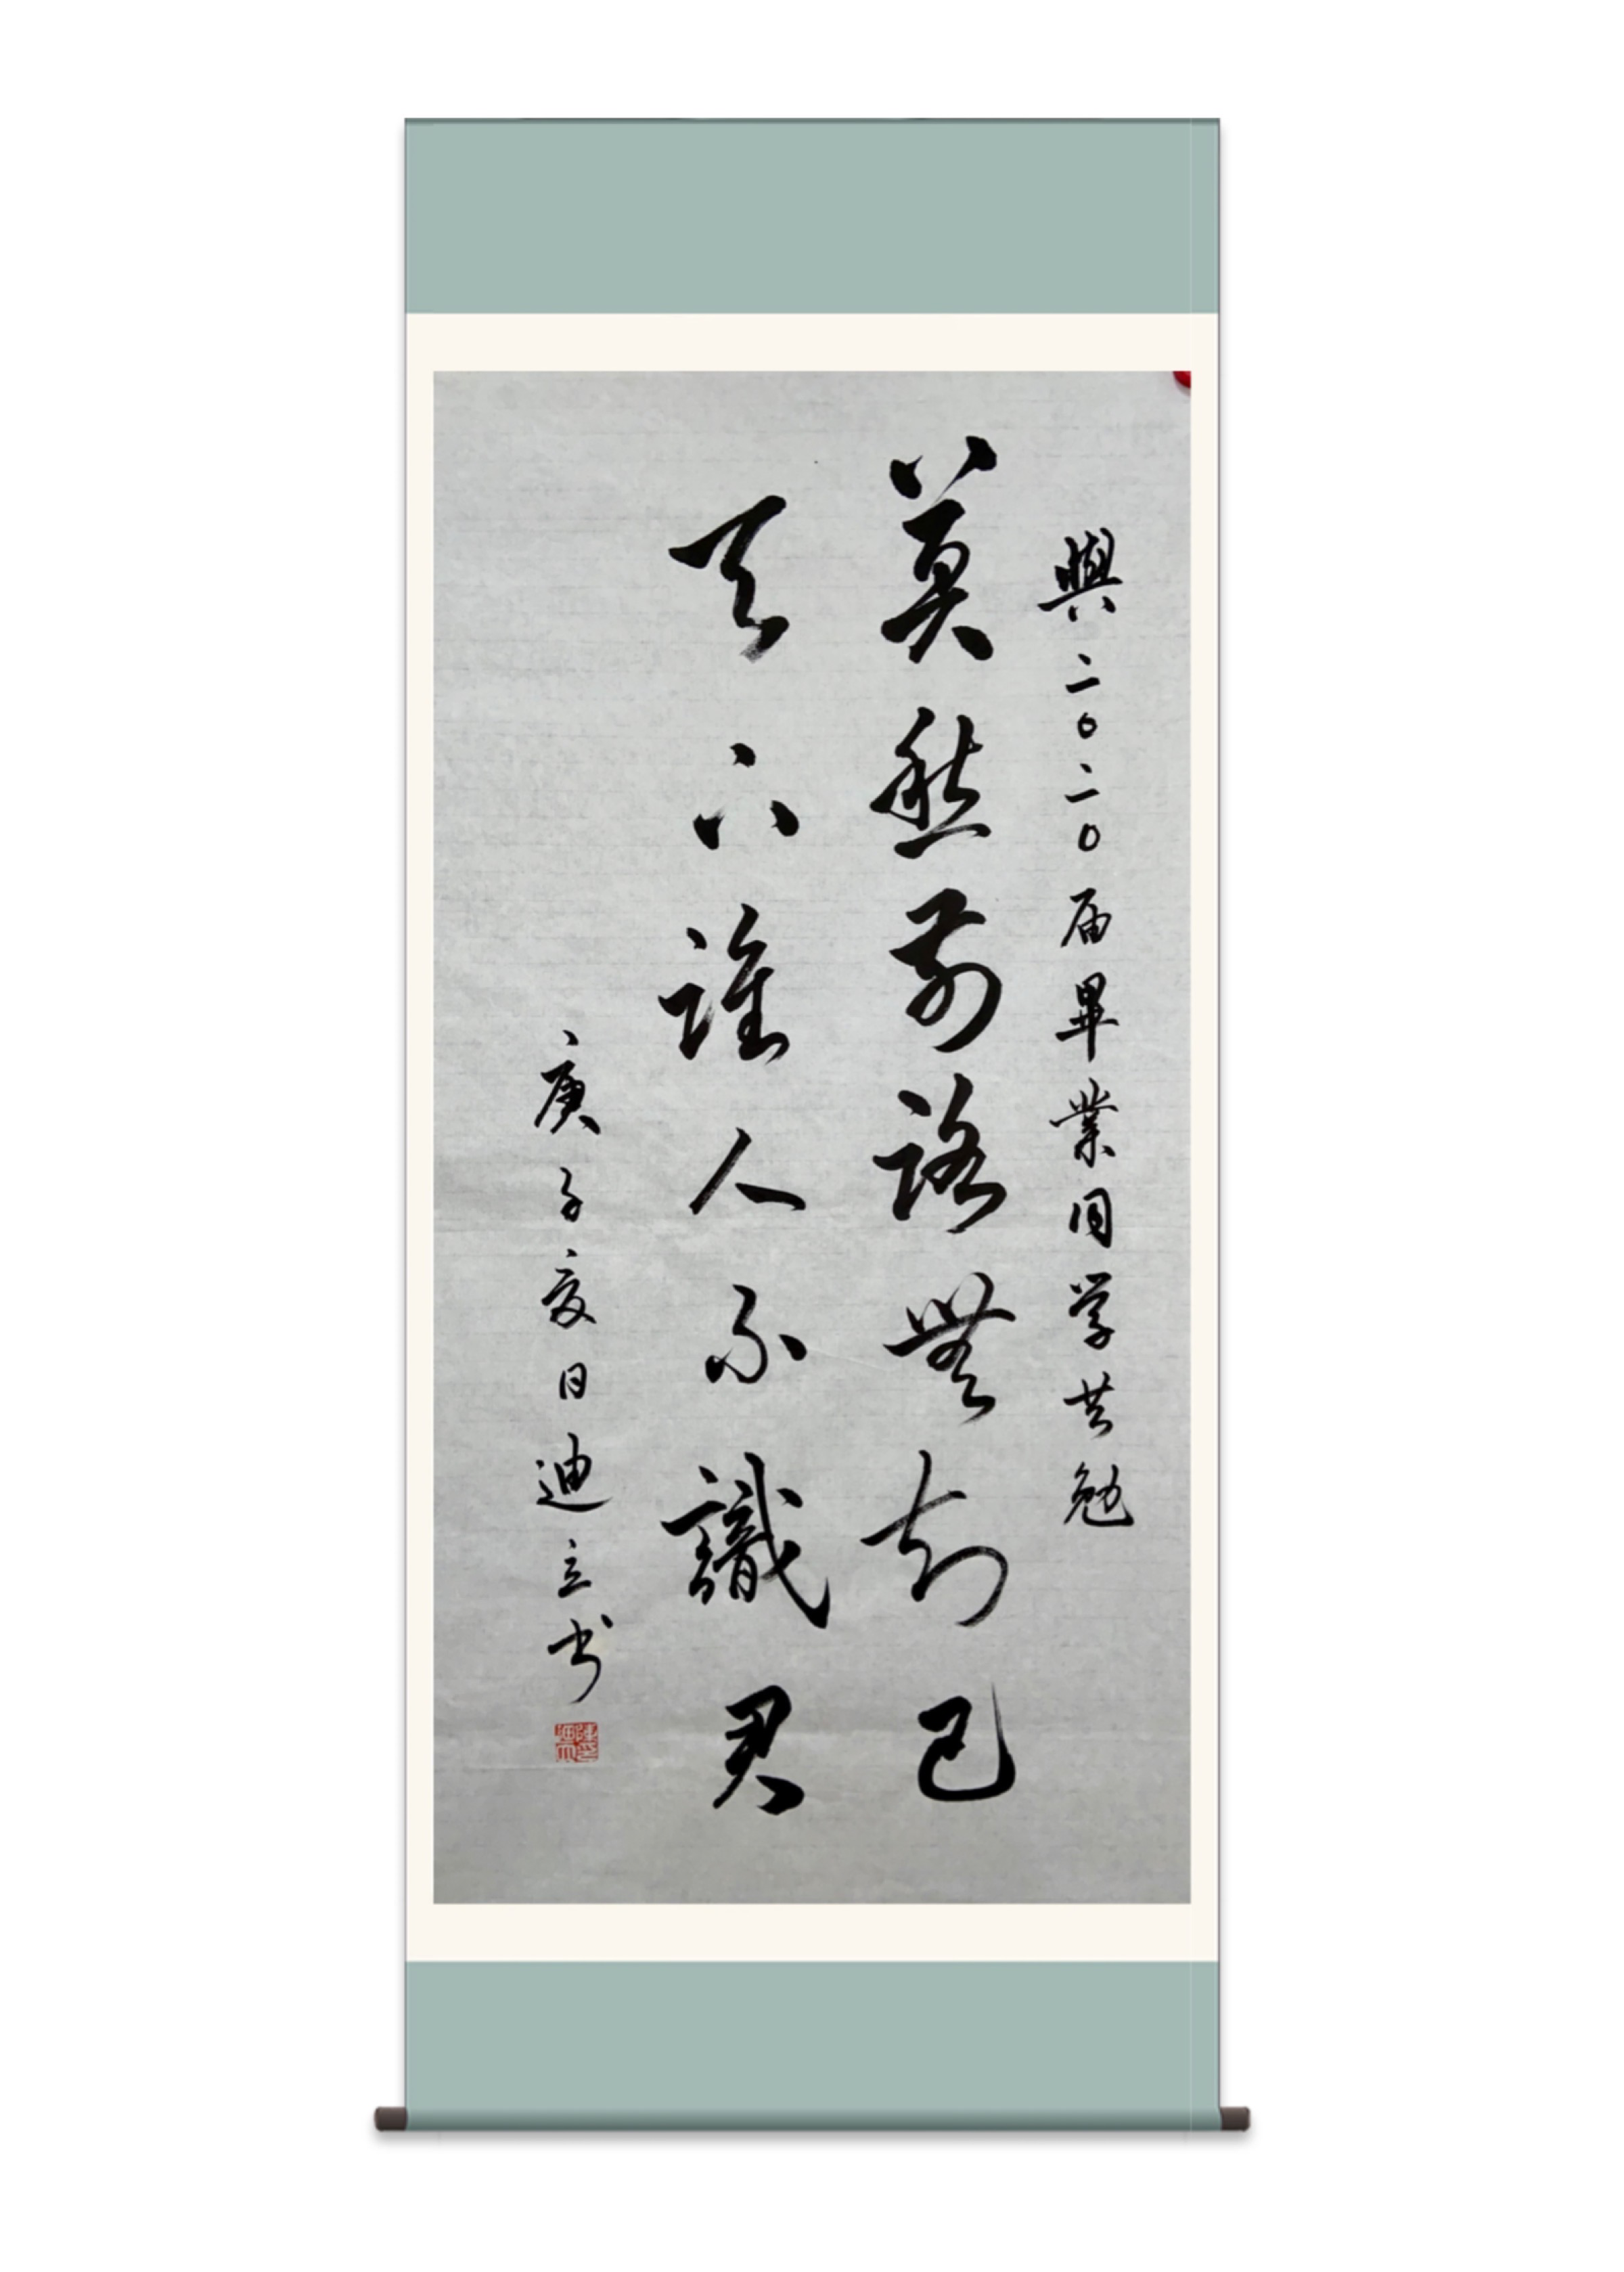 與二〇二〇届畢業同学共勉
莫愁前路無知己
天下誰人不識君
庚子夏日迪立书